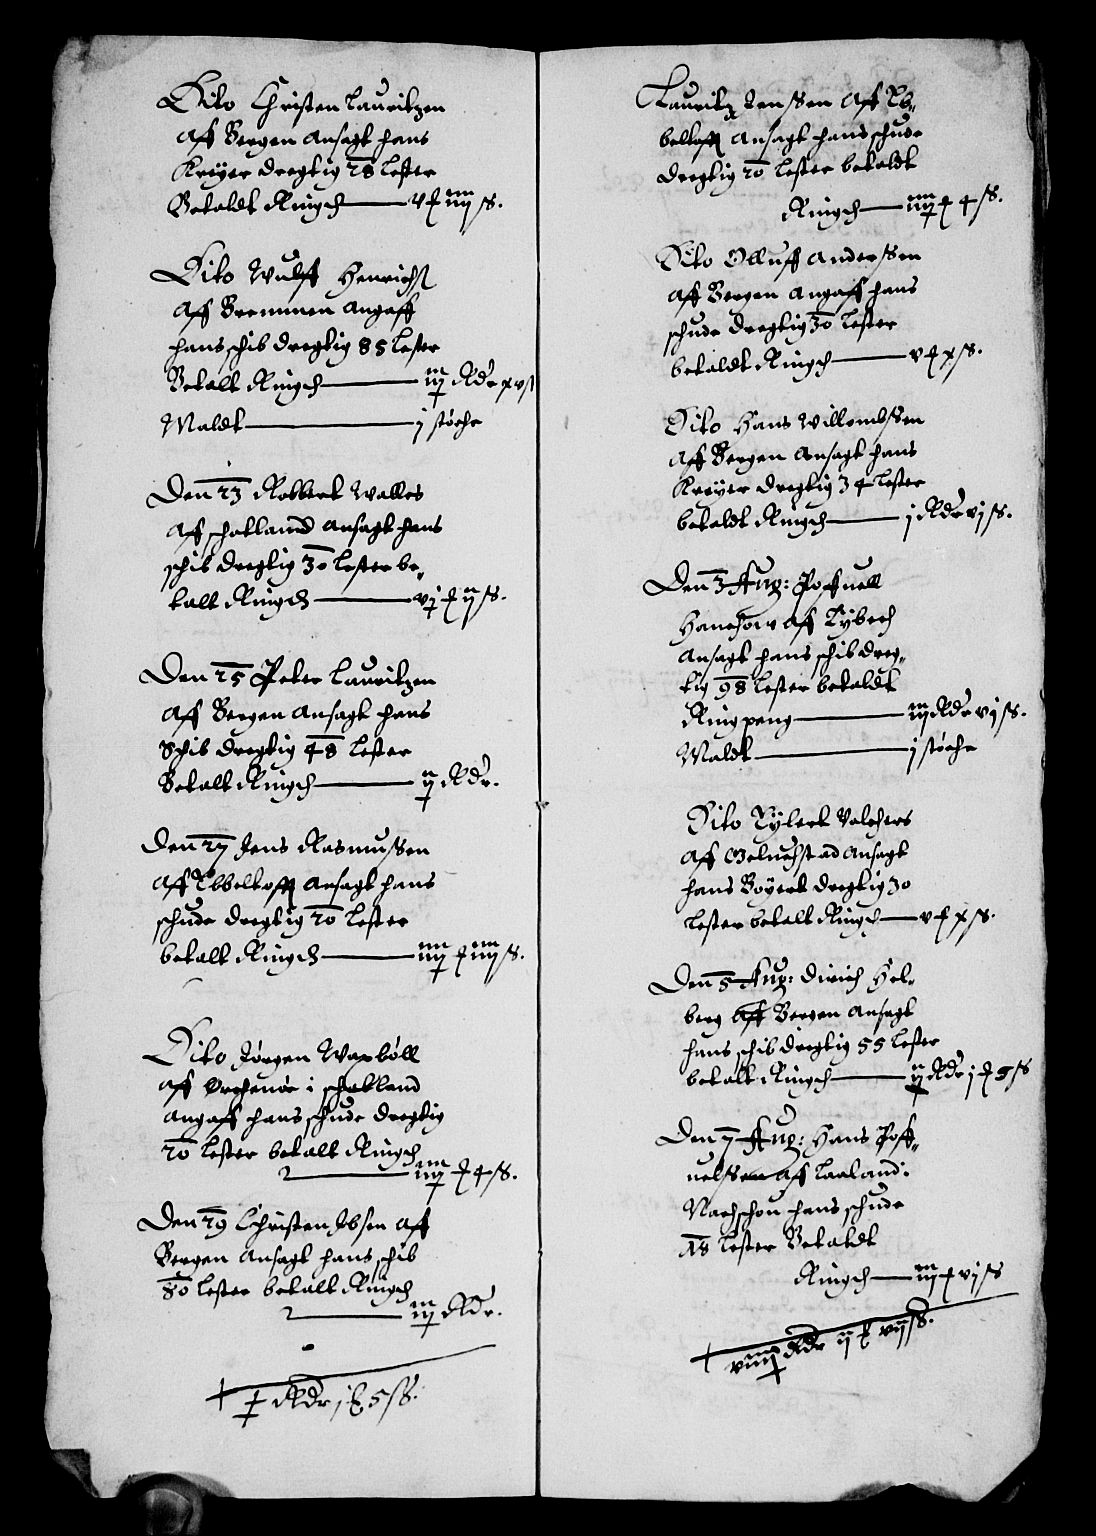 Dito Christen Lauritzen
Aff Bergen Ansagt hans
Kreyer dregtig 28 Lester
Betaldt Ringch — v ₰ iiij ß.
Dito Wulff Henrichß
Aff Bremmen Angaff
hans schib dregtig 85 Lester
Betalt Ringch — iij Rdr xv ß
Maldt — j støche
Den 23 Robbert Walles
Aff schotland Ansagt hans
schib dregtig 30 Lester be-
talt Ringch — vj ₰ ij ß.
Den 25 Peter Lauritzen
Aff Bergen Ansagt hans
Schib dregtig 48 Lester
Betalt Ringch — ij Rdr.
Den 27 Jens Rasmussen
Aff Ebbeltofft Ansagt hans
schude dregtig 20 Lester
betalt Ringch — iiij ₰ iiij ß.
Dito Jørgen Waxböll
Aff Orchenøe i schotland
Angaff hans schude dregtig
20 Lester betalt Ringch
— iiij ₰ 4 ß.
Den 29 Christen Ibsen Aff
Bergen Ansagt hans schib
80 Lester betalt Ringch
— iij Rdr.
Rdr j ₰ 5 ß.
Lauritz Jenssen Aff Eb-
beltofft Ansagt hans schude
dregtig 20 Lester betaldt
Ringch — iiij ₰ 4 ß.
Dito Olluff Anderssen
Aff Bergen Angaff hans
schude dregtig 30 Lester
betaldt Ringch — v ₰ x ß.
Dito Hans Willombssen
Aff Bergen Ansagt hans
Kreyer dregtig 34 Lester
betaldt Ringch — j Rdr vj ß.
Den 3 Aug: Poffuell
Hanchow Aff Lybech
Ansagt hans schib dreg-
tig 98 Lester betaldt
Ringpeng — iij Rdr vj ß.
Maldt — j støche
Dito Tylert Volchers
Aff Meluchstad Ansagt
hans Boyert dregtig 30
Lester betalt Ringch — v ₰ x ß.
Den 5 Aug: Dirich Hel-
berg Aff Bergen Ansagt
hans schib dregtig 55 Lester
betalt Ringch — ij Rdr j ₰ 5 ß
Den 7 Aug: Hans Poff-
uelssen Aff Laaland:
Nachschou hans schude
18 Lester Betaldt
Ringch — iij ₰ vj ß
viiij Rdr ij ₰ vij ß.